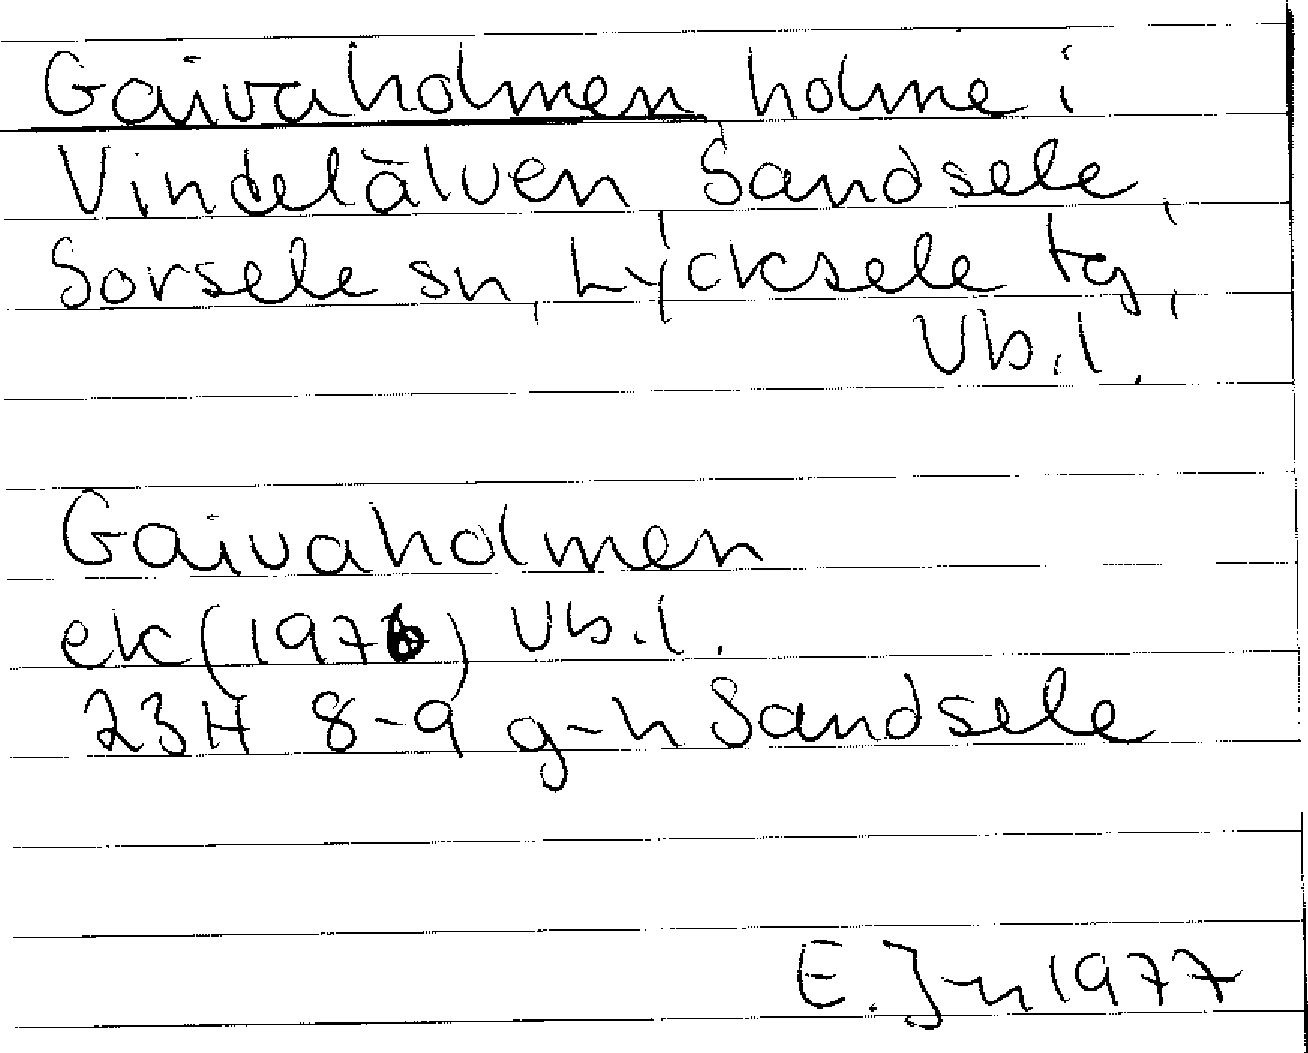 Gaivaholmen holme i
Vindelälven Sandsele,
Sorsele sn, Lycksele tg,
Vb.l.
Gaivaholmen
ek (1976) Vb.l.
23H 8-9 g-h Sandsele
E. J-n 1977